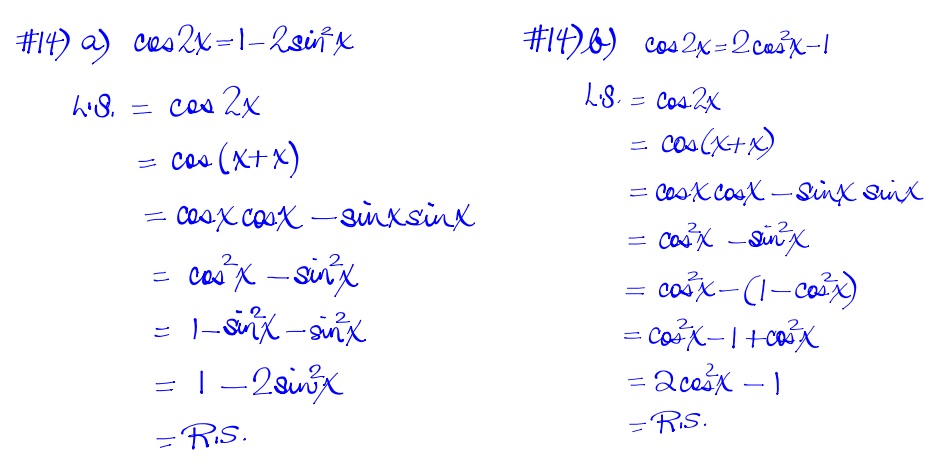 #14) a) cos2x=1-2sin²x
L.S. = cos 2x
= cos (x+x)
= cosx cosx - sinx sinx
= cos²x - sin²x
= 1-sin²x - sin²x
= 1 - 2sin²x
= R.S.
#14) b) cos2x=2cos²x-1
L.S. = cos2x
= cos(x+x)
= cosx cosx - sinx sinx
= cos²x - sin²x
= cos²x - (1-cos²x)
= cos²x - 1 + cos²x
= 2cos²x - 1
= R.S.